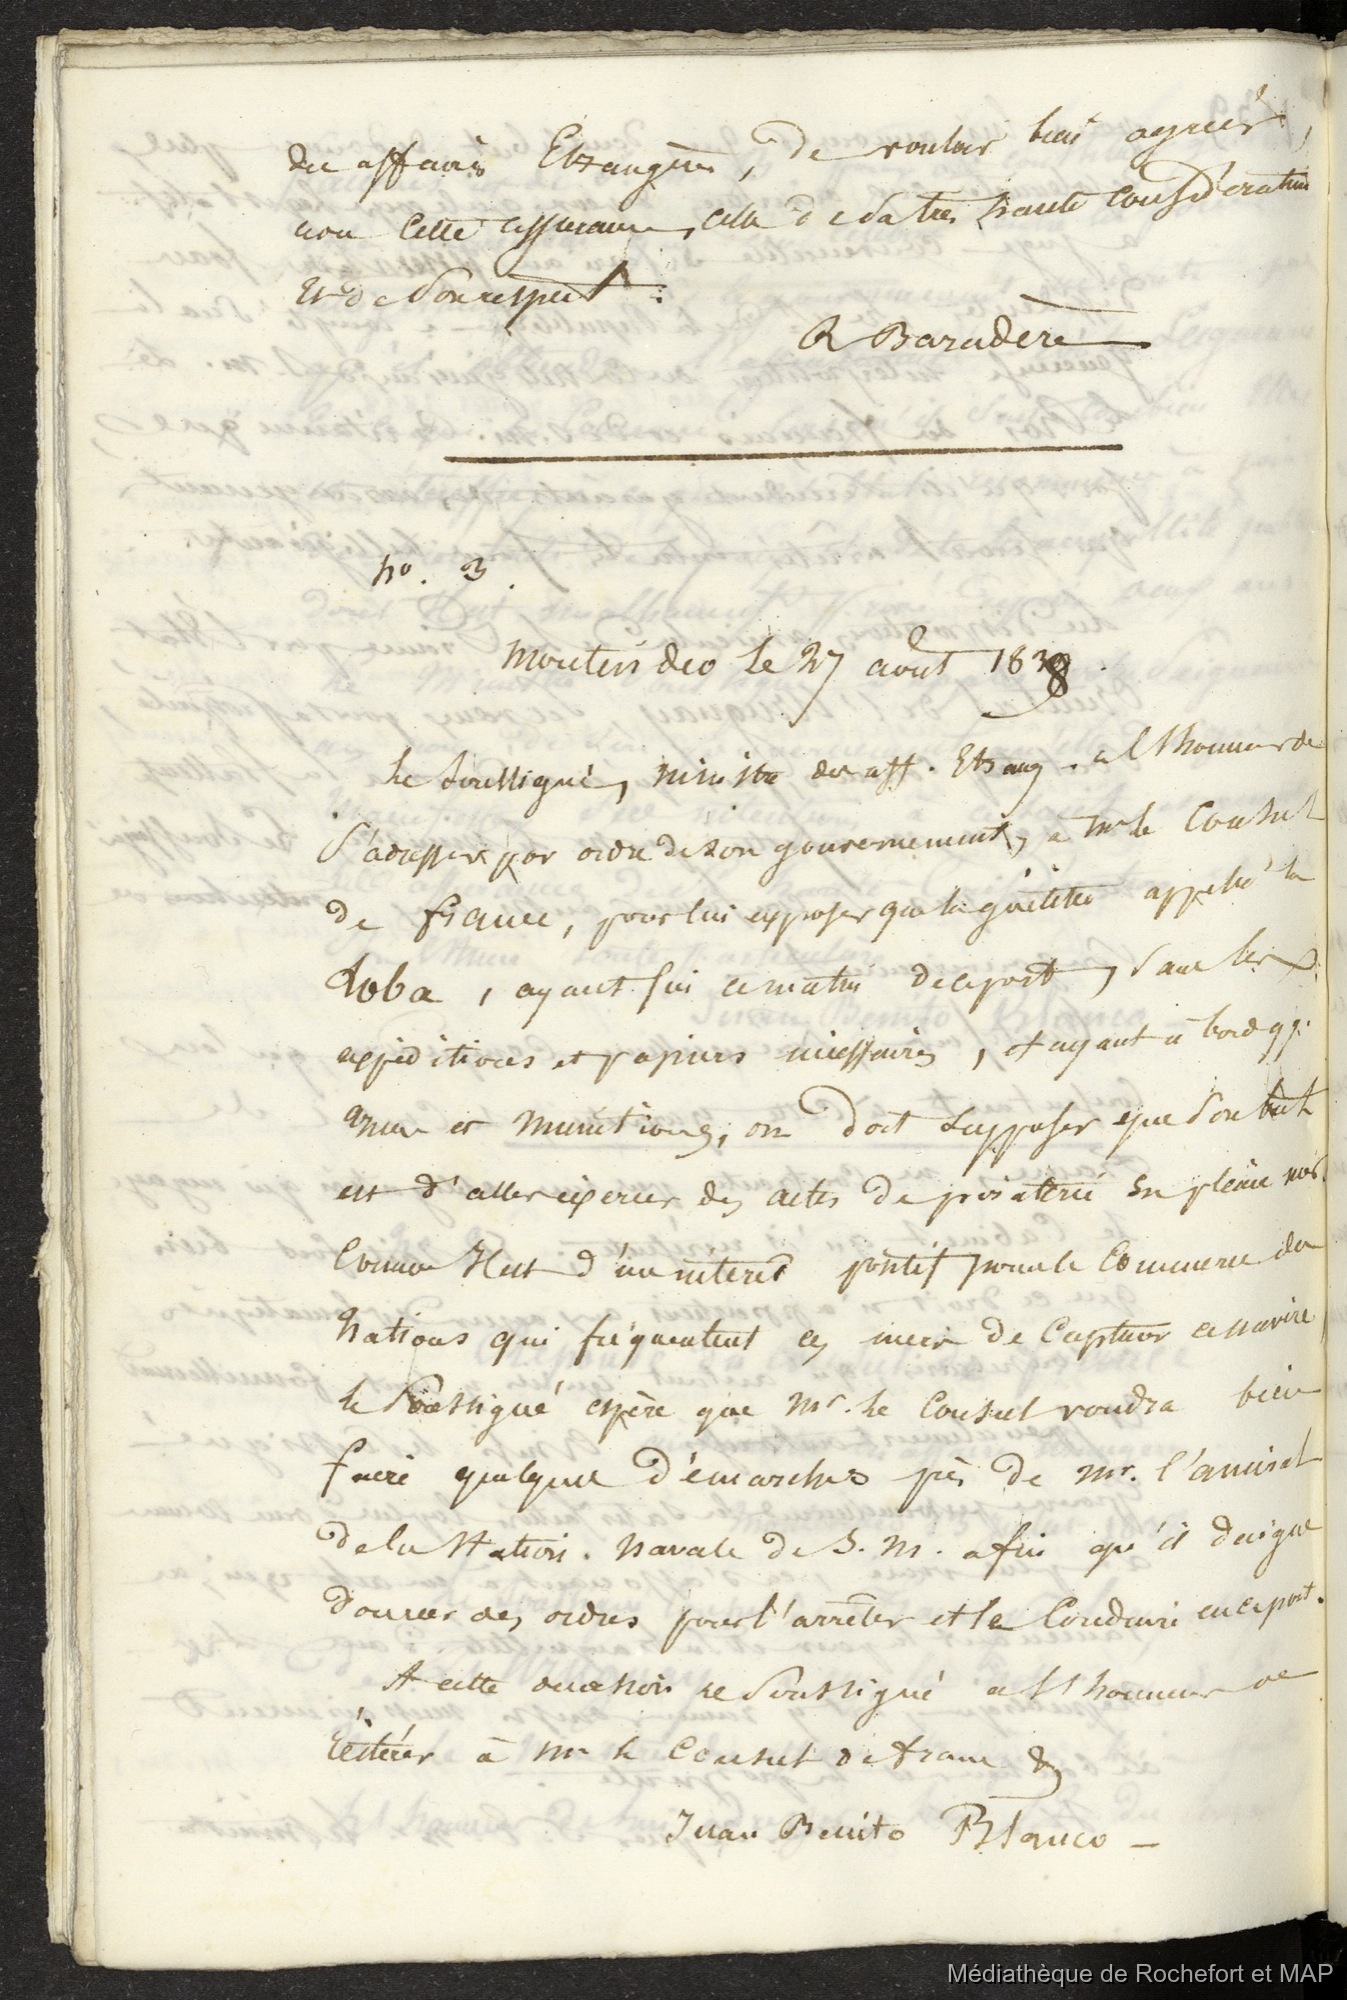 des affaires Etrangères, de vouloir bien agréer,
avec cette assurance, celle de sa très haute considération
Et de son respect.
R Baradère
no. 3.
Montevideo le 27 août 1838.
Le soussigné, ministre des aff. Etrang. a l'honneur de
s'adresser par ordre de son gouvernement, à Mr le Consul
de france, pour lui exposer que la goëlette appelée la
Loba, ayant fui ce matin de ce port, sans les
expéditions et papiers nécessaires, et ayant à bord qq.
armes et munitions, on doit supposer que son but
est d'aller exercer des actes de piraterie en pleine mer.
Comme Il est d'un intérêt positif pour le Commerce des
Nations qui fréquentent ces mers de Capturer ce navire
le Soussigné espère que Mr. le Consul voudra bien
faire quelques démarches près de Mr. l'amiral
de la Station navale de S. M. afin qu'il daigne
donner des ordres pour l'arrêter et le Conduire en ce port.
A cette occasion le soussigné a l'honneur de
réitérer à Mr le Consul de france &
Juan Benito Blanco
Médiathèque de Rochefort et MAP